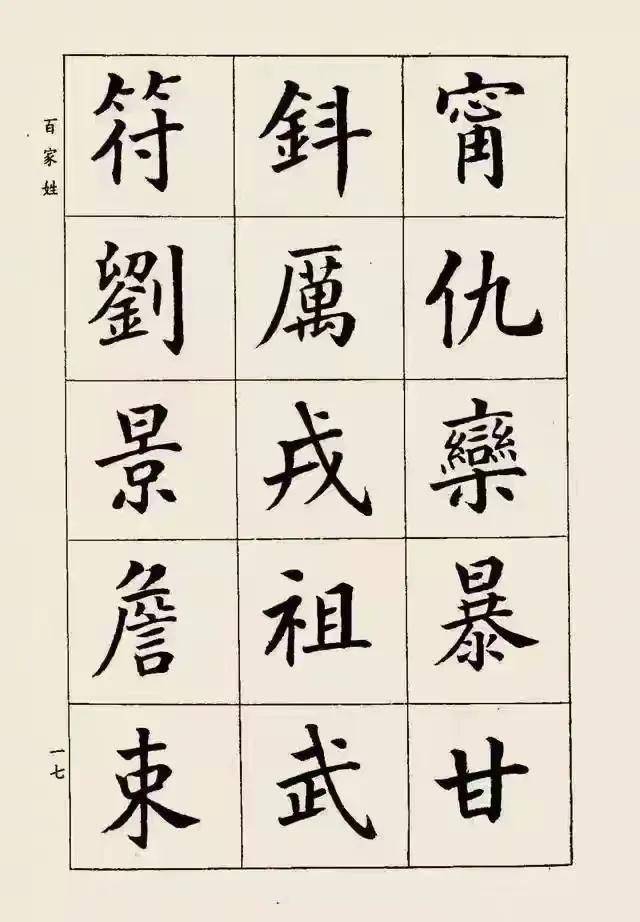 甯仇欒暴甘
鈄厲戎祖武
符劉景詹束
百家姓
一七